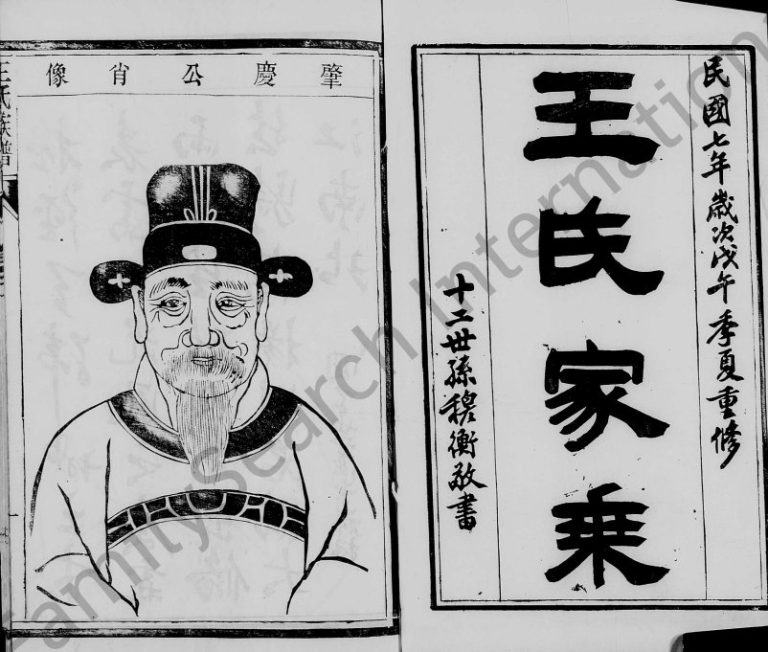 民國七年歲次戊午季夏重修
王氏家乘
十二世孫穆衡敬書
肇慶公肖像
王氏族譜
FamilySearch International